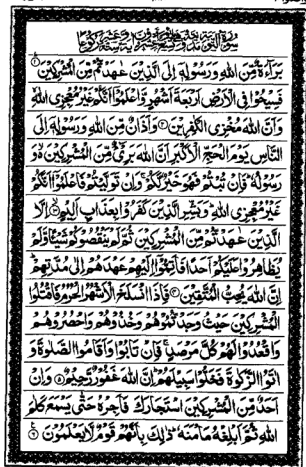 بَرَآءَةٌ مِّنَ اللهِ وَرَسُولِهٖٓ اِلَى الَّذِيْنَ عٰهَدْتُّمْ مِّنَ الْمُشْرِكِيْنَ ۝١
فَسِيْحُوْا فِى الْاَرْضِ اَرْبَعَةَ اَشْهُرٍ وَّاعْلَمُوْٓا اَنَّكُمْ غَيْرُ مُعْجِزِى اللهِ
وَاَنَّ اللهَ مُخْزِى الْكٰفِرِيْنَ ۝٢ وَاَذَانٌ مِّنَ اللهِ وَرَسُوْلِهٖٓ اِلَى
النَّاسِ يَوْمَ الْحَجِّ الْاَكْبَرِ اَنَّ اللهَ بَرِىْٓءٌ مِّنَ الْمُشْرِكِيْنَ ە وَ
رَسُوْلُهٗ فَاِنْ تُبْتُمْ فَهُوَ خَيْرٌ لَّكُمْ وَاِنْ تَوَلَّيْتُمْ فَاعْلَمُوْٓا اَنَّكُمْ
غَيْرُ مُعْجِزِى اللهِ وَبَشِّرِ الَّذِيْنَ كَفَرُوْا بِعَذَابٍ اَلِيْمٍ ۝٣ اِلَّا
الَّذِيْنَ عٰهَدْتُّمْ مِّنَ الْمُشْرِكِيْنَ ثُمَّ لَمْ يَنْقُصُوْكُمْ شَيْئًا وَّلَمْ
يُظَاهِرُوْا عَلَيْكُمْ اَحَدًا فَاَتِمُّوْٓا اِلَيْهِمْ عَهْدَهُمْ اِلٰى مُدَّتِهِمْ
اِنَّ اللهَ يُحِبُّ الْمُتَّقِيْنَ ۝٤ فَاِذَا انْسَلَخَ الْاَشْهُرُ الْحُرُمُ فَاقْتُلُوا
الْمُشْرِكِيْنَ حَيْثُ وَجَدْتُّمُوْهُمْ وَخُذُوْهُمْ وَاحْصُرُوْهُمْ
وَاقْعُدُوْا لَهُمْ كُلَّ مَرْصَدٍ فَاِنْ تَابُوْا وَاَقَامُوا الصَّلٰوةَ وَ
اٰتَوُا الزَّكٰوةَ فَخَلُّوْا سَبِيْلَهُمْ اِنَّ اللهَ غَفُوْرٌ رَّحِيْمٌ ۝٥ وَاِنْ
اَحَدٌ مِّنَ الْمُشْرِكِيْنَ اسْتَجَارَكَ فَاَجِرْهُ حَتّٰى يَسْمَعَ كَلٰمَ
اللهِ ثُمَّ اَبْلِغْهُ مَاْمَنَهٗ ذٰلِكَ بِاَنَّهُمْ قَوْمٌ لَّا يَعْلَمُوْنَ ۝٦